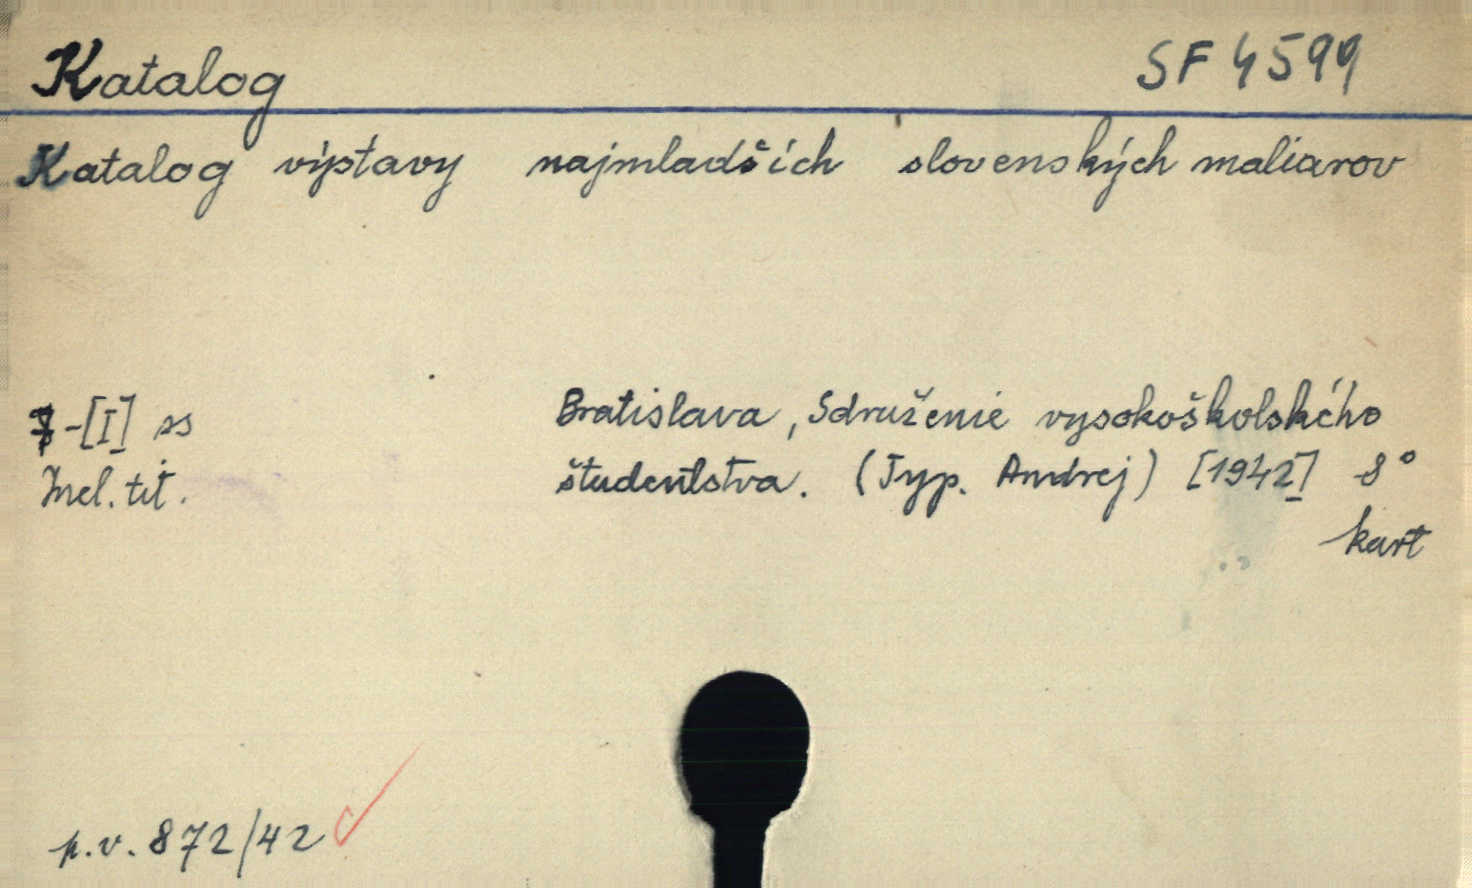 Katalog SF 4599
Katalog výstavy najmladších slovenských maliarov
Bratislava, Sdruženie vysokoškolského
-[I] ss
študentstva. (Typ. Andrej) [1942] 8°
tit.
kart
p.v. 872/42